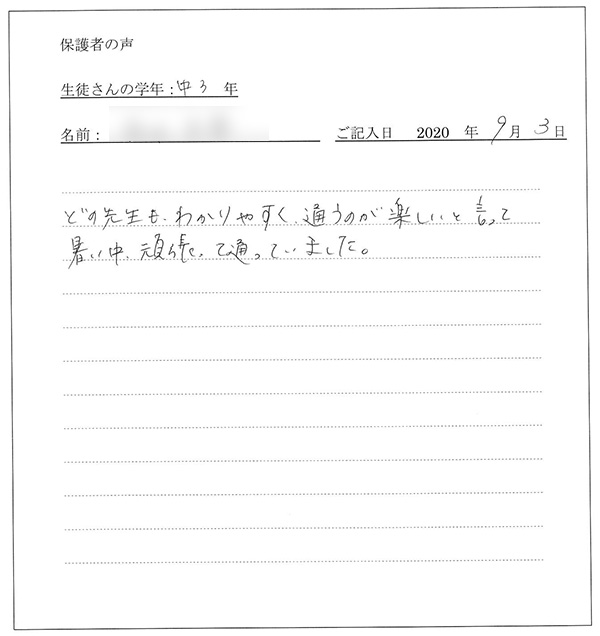 保護者の声
生徒さんの学年：中3 年
名前： ご記入日 2020 年 9月 3日
どの先生も、わかりやすく、通うのが楽しいと言って
暑い中、頑張って通っていました。